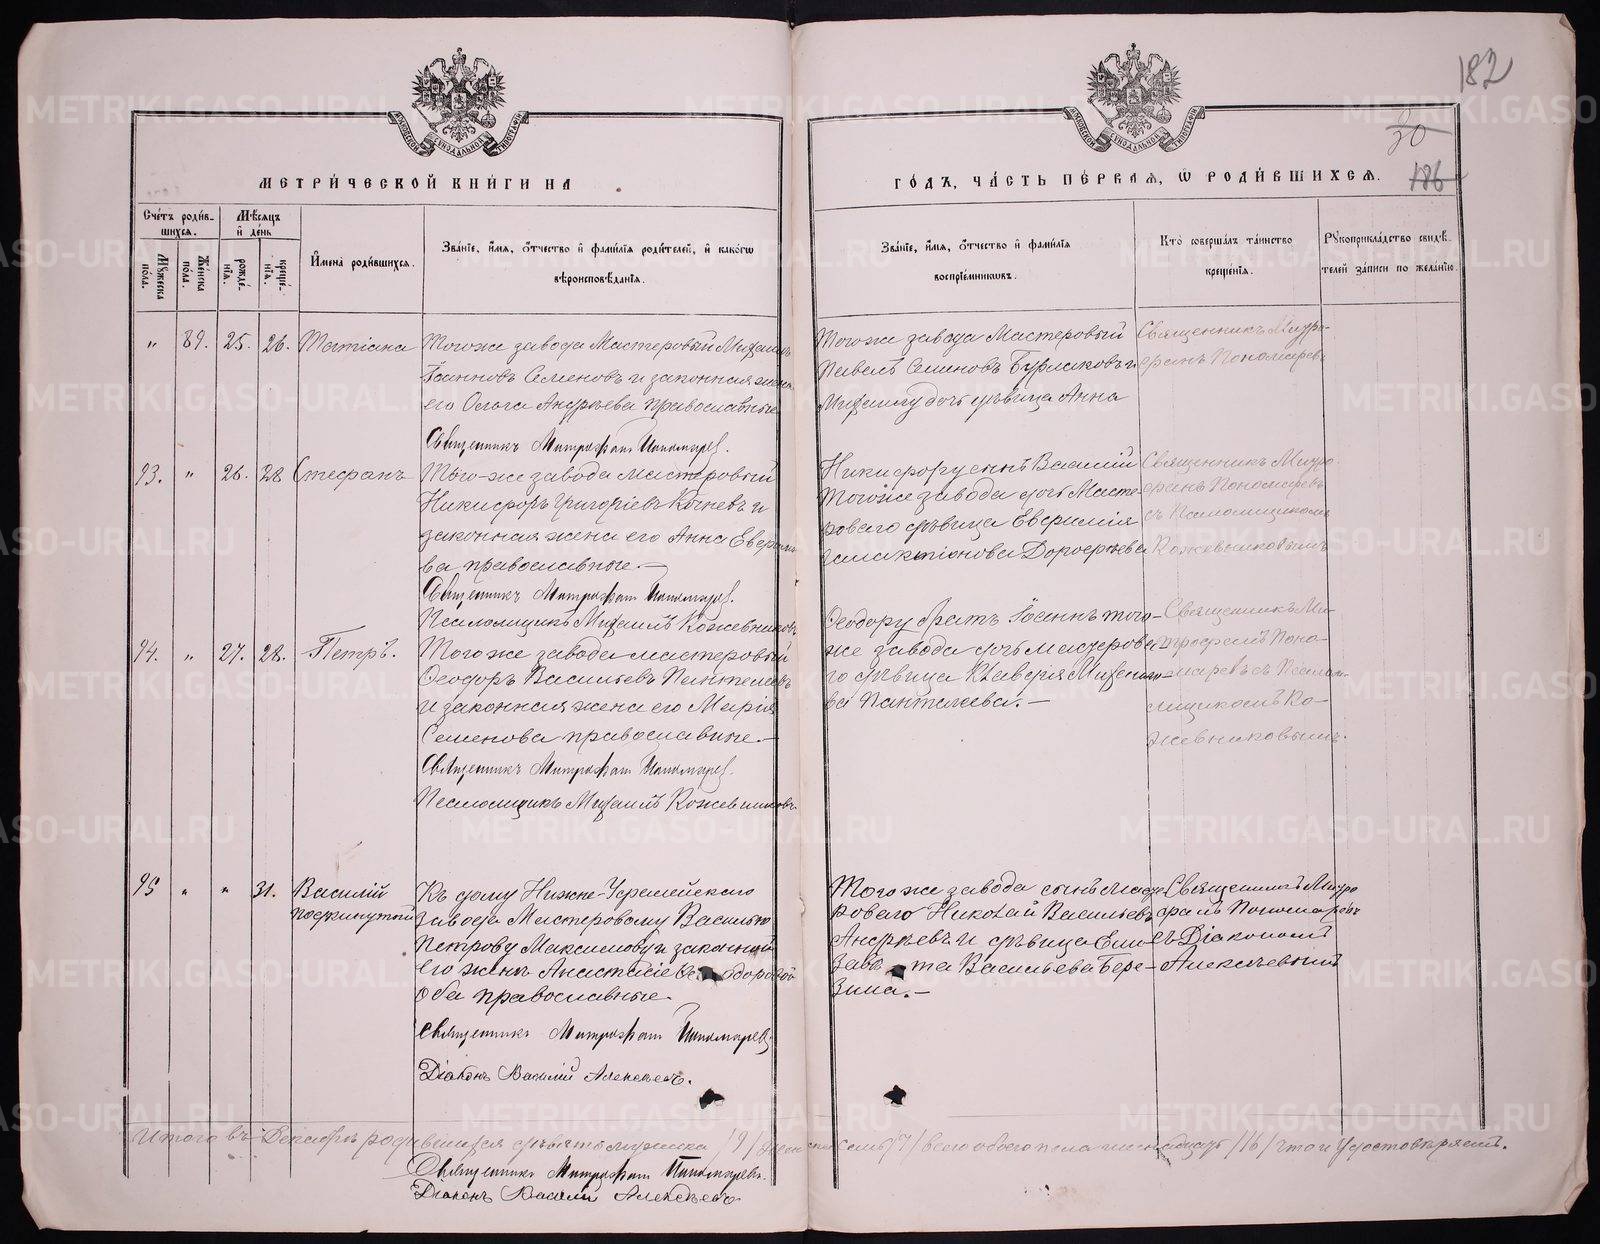 182
30
186
МЕТРИЧЕСКОЙ КНИГИ НА
ГОДЪ, ЧАСТЬ ПЕРВАЯ, Ѡ РОДИВШИХСЯ.
Счетъ родив-
шихся.
Мѣсяцъ
и день
Мꙋжеска
пола.
Женска
пола.
рожде-
нїя.
креще-
нїя.
Имена родившихся.
Званїе, имя, отчество и фамилїя родителей, и какогѡ
вѣроисповѣданїя.
Званїе, имя, отчество и фамилїя
воспрїемникѡвъ.
Кто совершалъ таинство
крещенїя.
Рꙋкоприкладство свидѣ-
телей записи по желанїю.
" 89. 25. 26. Татіана
Тогоже завода Мастеровый Михаилъ
Іоанновъ Семеновъ и законная жена
его Ольга Андреева православные
Священникъ Митрофанъ Пономаревъ.
Тогоже завода Мастеровый
Павелъ Семеновъ Бурлаковъ и
Михаилу дочь дѣвица Анна
Священникъ Митро-
фанъ Пономаревъ
93. " 26. 28 Стефанъ
Того-же завода мастеровый
Никифоръ Григоріевъ и
законная жена его Анна
ва православные.
Священникъ Митрофанъ Пономаревъ.
Псаломщикъ Михаилъ Кожевниковъ
Никифору сынъ Василій
Тогоже завода дочь Масте-
роваго дѣвица Евфимія
Галактіонова Дорофеева
Священникъ Митро-
фанъ Пономаревъ
съ Псаломщикомъ
Кожевниковымъ
94. " 27. 28. Петръ.
Тогоже завода мастеровый
Ѳеодоръ Васильевъ Пантелеевъ
и законная жена его Марія
Семенова православные.
Священникъ Митрофанъ Пономаревъ.
Псаломщикъ Михаилъ Кожевниковъ.
Ѳеодору братъ Іоаннъ того-
же завода дочь мастерова-
го дѣвица Михайло-
ва Пантелеева.
Священникъ Ми-
трофанъ Поно-
маревъ съ Псалом-
щикомъ Ко-
жевниковымъ.
95 " " 31. Василій
подкинутый
Къ дому Нижне-Уфалейскаго
завода Мастеровому Василью
Петрову Максимову и законной
его женѣ Анастасіе
Оба православные.
Священникъ Митрофанъ Пономаревъ
Діаконъ Василій Алексѣевъ.
Тогоже завода сынъ Масте-
роваго Николай Васильевъ
Андреевъ и дѣвица Ели-
завета Васильева Бере-
зина.
Священникъ Митро
фанъ Пономаревъ
съ Діакономъ
Алексѣевымъ
Итого въ Декабрѣ родившихся девять мужска /9/ женска семь /7/ всего обоего пола шестнадцать /16/ что и удостовѣряемъ.
Священникъ Митрофанъ Пономаревъ.
Діаконъ Василій Алексѣевъ.
METRIKI.GASO-URAL.RU